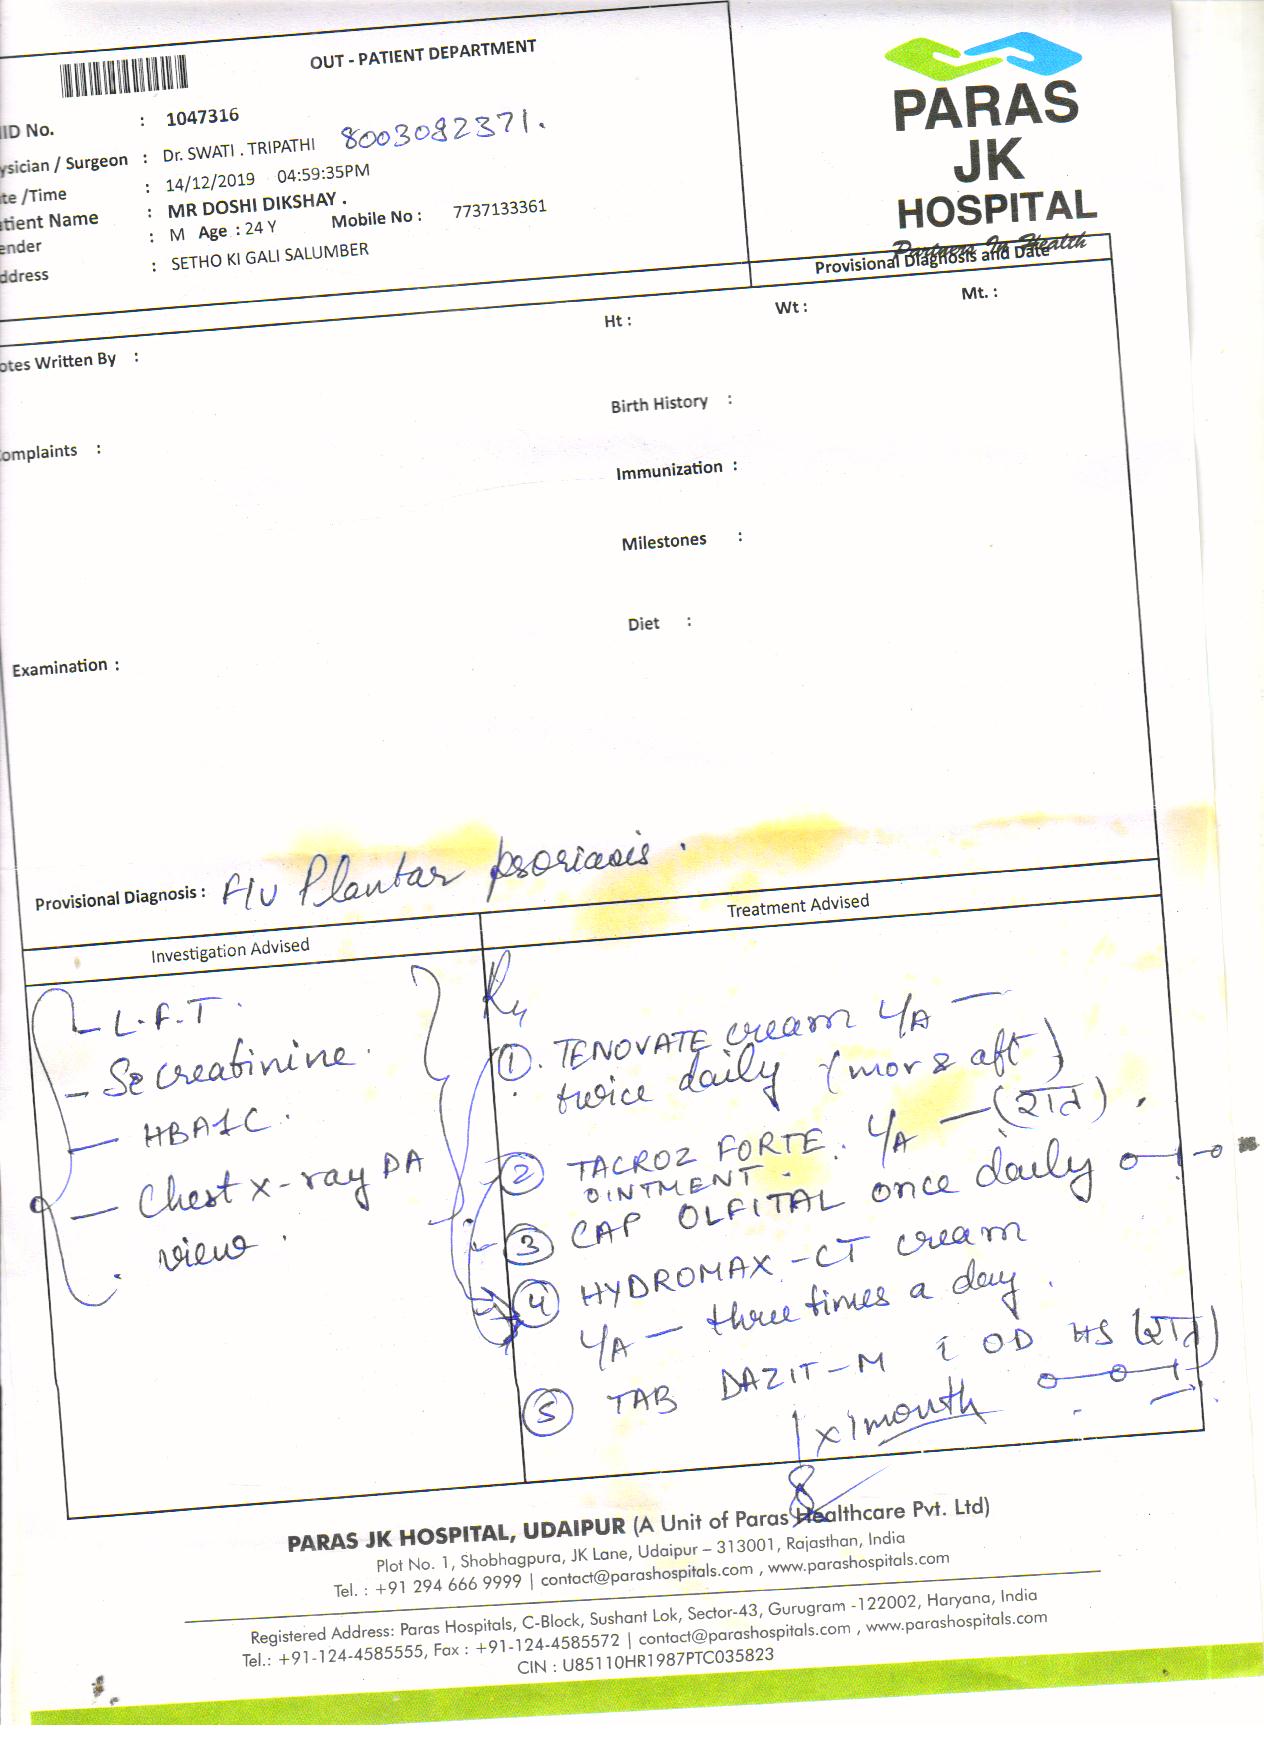 OUT - PATIENT DEPARTMENT
PARAS
JK
HOSPITAL
Partners In Health
ID No. : 1047316
ysician / Surgeon : Dr. SWATI . TRIPATHI 8003082371.
te /Time : 14/12/2019 04:59:35PM
tient Name : MR DOSHI DIKSHAY .
ender : M Age : 24 Y Mobile No : 7737133361
ddress : SETHO KI GALI SALUMBER
Provisional Diagnosis and Date
Ht : Wt : Mt. :
otes Written By :
Birth History :
omplaints :
Immunization :
Milestones :
Diet :
Examination :
Provisional Diagnosis : F/U Plantar psoriasis.
Investigation Advised
- L.F.T.
- Se creatinine.
- HBA1C.
- Chest x-ray PA
view.
Treatment Advised
Rx
1. TENOVATE cream L/A —
twice daily (mor & aft)
2 TACROZ FORTE. L/A — (रात).
OINTMENT.
3 CAP OLFITAL once daily o-1-o
4 HYDROMAX-CT cream
L/A — three times a day.
5 TAB DAZIT-M i OD HS (रात)
o-o-1
x 1 month
PARAS JK HOSPITAL, UDAIPUR (A Unit of Paras Healthcare Pvt. Ltd)
Plot No. 1, Shobhagpura, JK Lane, Udaipur – 313001, Rajasthan, India
Tel. : +91 294 666 9999 | contact@parashospitals.com , www.parashospitals.com
Registered Address: Paras Hospitals, C-Block, Sushant Lok, Sector-43, Gurugram -122002, Haryana, India
Tel.: +91-124-4585555, Fax : +91-124-4585572 | contact@parashospitals.com , www.parashospitals.com
CIN : U85110HR1987PTC035823